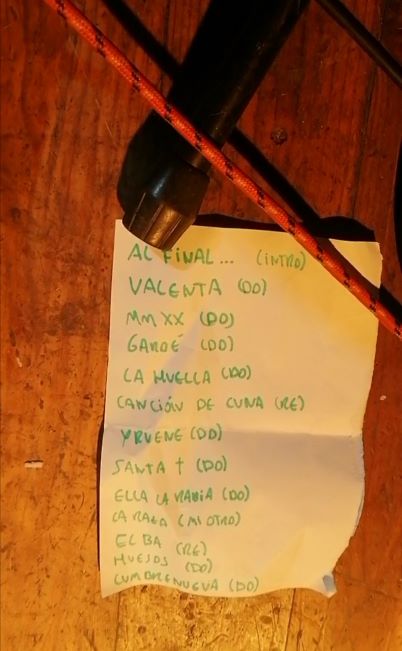 AL FINAL... (INTRO)
VALENTA (DO)
MMXX (DO)
GAROÉ (DO)
LA HUELLA (DO)
CANCIÓN DE CUNA (RE)
YRUENE (DO)
SANTA † (DO)
ELLA LA RABIA (DO)
LA RAZA (MI OTRO)
ELBA (RE)
HUESOS (DO)
CUMBRENUEVA (DO)